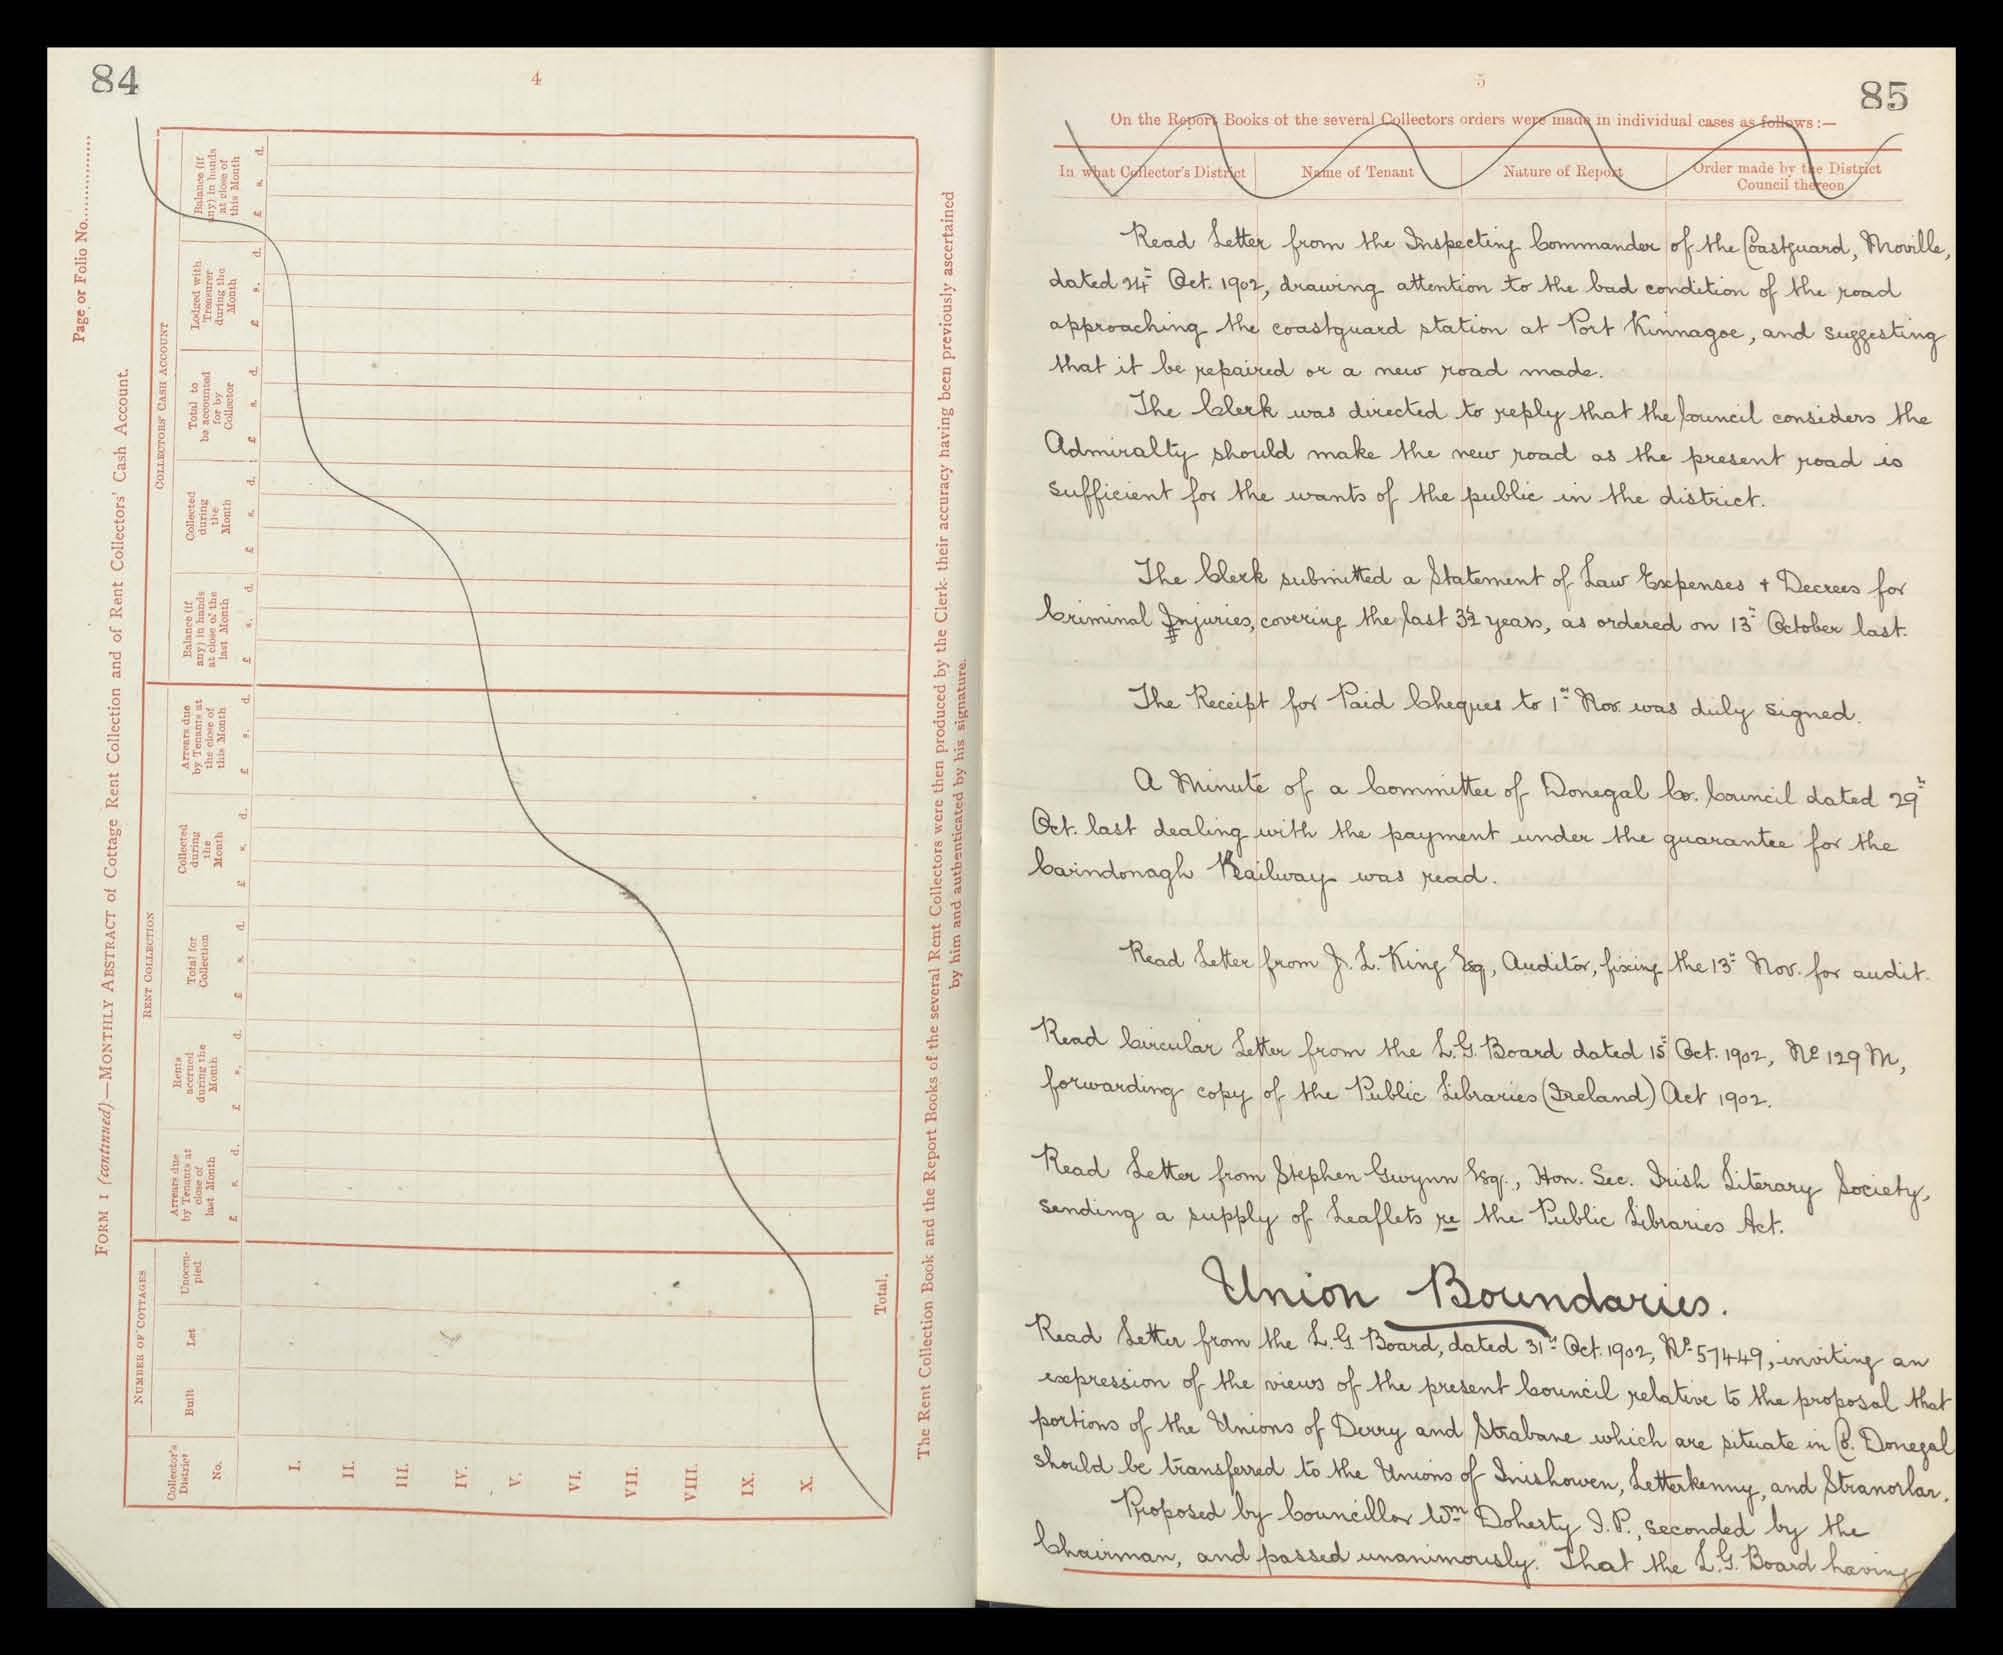 84
4
Page or Folio No.
FORM 1 (continued)—MONTHLY ABSTRACT of Cottage Rent Collection and of Rent Collectors' Cash Account.
NUMBER OF COTTAGES
RENT COLLECTION
COLLECTORS' CASH ACCOUNT
Collector's
District
No.
Built
Let
Unoccu-
pied
Arrears due
by Tenants at
close of
last Month
£ s. d.
Rents
accrued
during the
Month
£ s. d.
Total for
Collection
£ s. d.
Collected
during
the
Month
£ s. d.
Arrears due
by Tenants at
the close of
this Month
£ s. d.
Balance (if
any) in hands
at close of the
last Month
£ s. d.
Collected
during
the
Month
£ s. d.
Total to
be accounted
for by
Collector
£ s. d.
Lodged with
Treasurer
during the
Month
£ s. d.
Balance (if
any) in hands
at close of
this Month
£ s. d.
I.
II.
III.
IV.
V.
VI.
VII.
VIII.
IX.
X.
Total.
The Rent Collection Book and the Report Books of the several Rent Collectors were then produced by the Clerk- their accuracy having been previously ascertained
by him and authenticated by his signature.
5
85
On the Report Books of the several Collectors orders were made in individual cases as follows:—
In what Collector's District
Name of Tenant
Nature of Report
Order made by the District
Council thereon
Read Letter from the Inspecting Commander of the Coastguard, Moville,
dated 24th Oct. 1902, drawing attention to the bad condition of the road
approaching the coastguard station at Port Kinnagoe, and suggesting
that it be repaired or a new road made.
The Clerk was directed to reply that the Council considers the
Admiralty should make the new road as the present road is
sufficient for the wants of the public in the district.
The Clerk submitted a Statement of Law Expenses + Decrees for
Criminal Injuries, covering the last 3½ years, as ordered on 13th October last.
The Receipt for Paid Cheques to 1st Nov. was duly signed.
A Minute of a Committee of Donegal Co. Council dated 29th
Oct. last dealing with the payment under the guarantee for the
Carndonagh Railway was read.
Read Letter from J. L. King Esq, Auditor, fixing the 13th Nov. for audit.
Read Circular Letter from the L.G. Board dated 15th Oct. 1902, No 129 M,
forwarding copy of the Public Libraries (Ireland) Act 1902.
Read Letter from Stephen Gwynn Esq., Hon. Sec. Irish Literary Society,
sending a supply of Leaflets re the Public Libraries Act.
Union Boundaries.
Read Letter from the L.G. Board, dated 31st Oct. 1902, No 57449, inviting an
expression of the views of the present Council relative to the proposal that
portions of the Unions of Derry and Strabane which are situate in Co. Donegal
should be transferred to the Unions of Inishowen, Letterkenny, and Stranorlar.
Proposed by Councillor Wm Doherty J.P., seconded by the
Chairman, and passed unanimously. "That the L.G. Board having